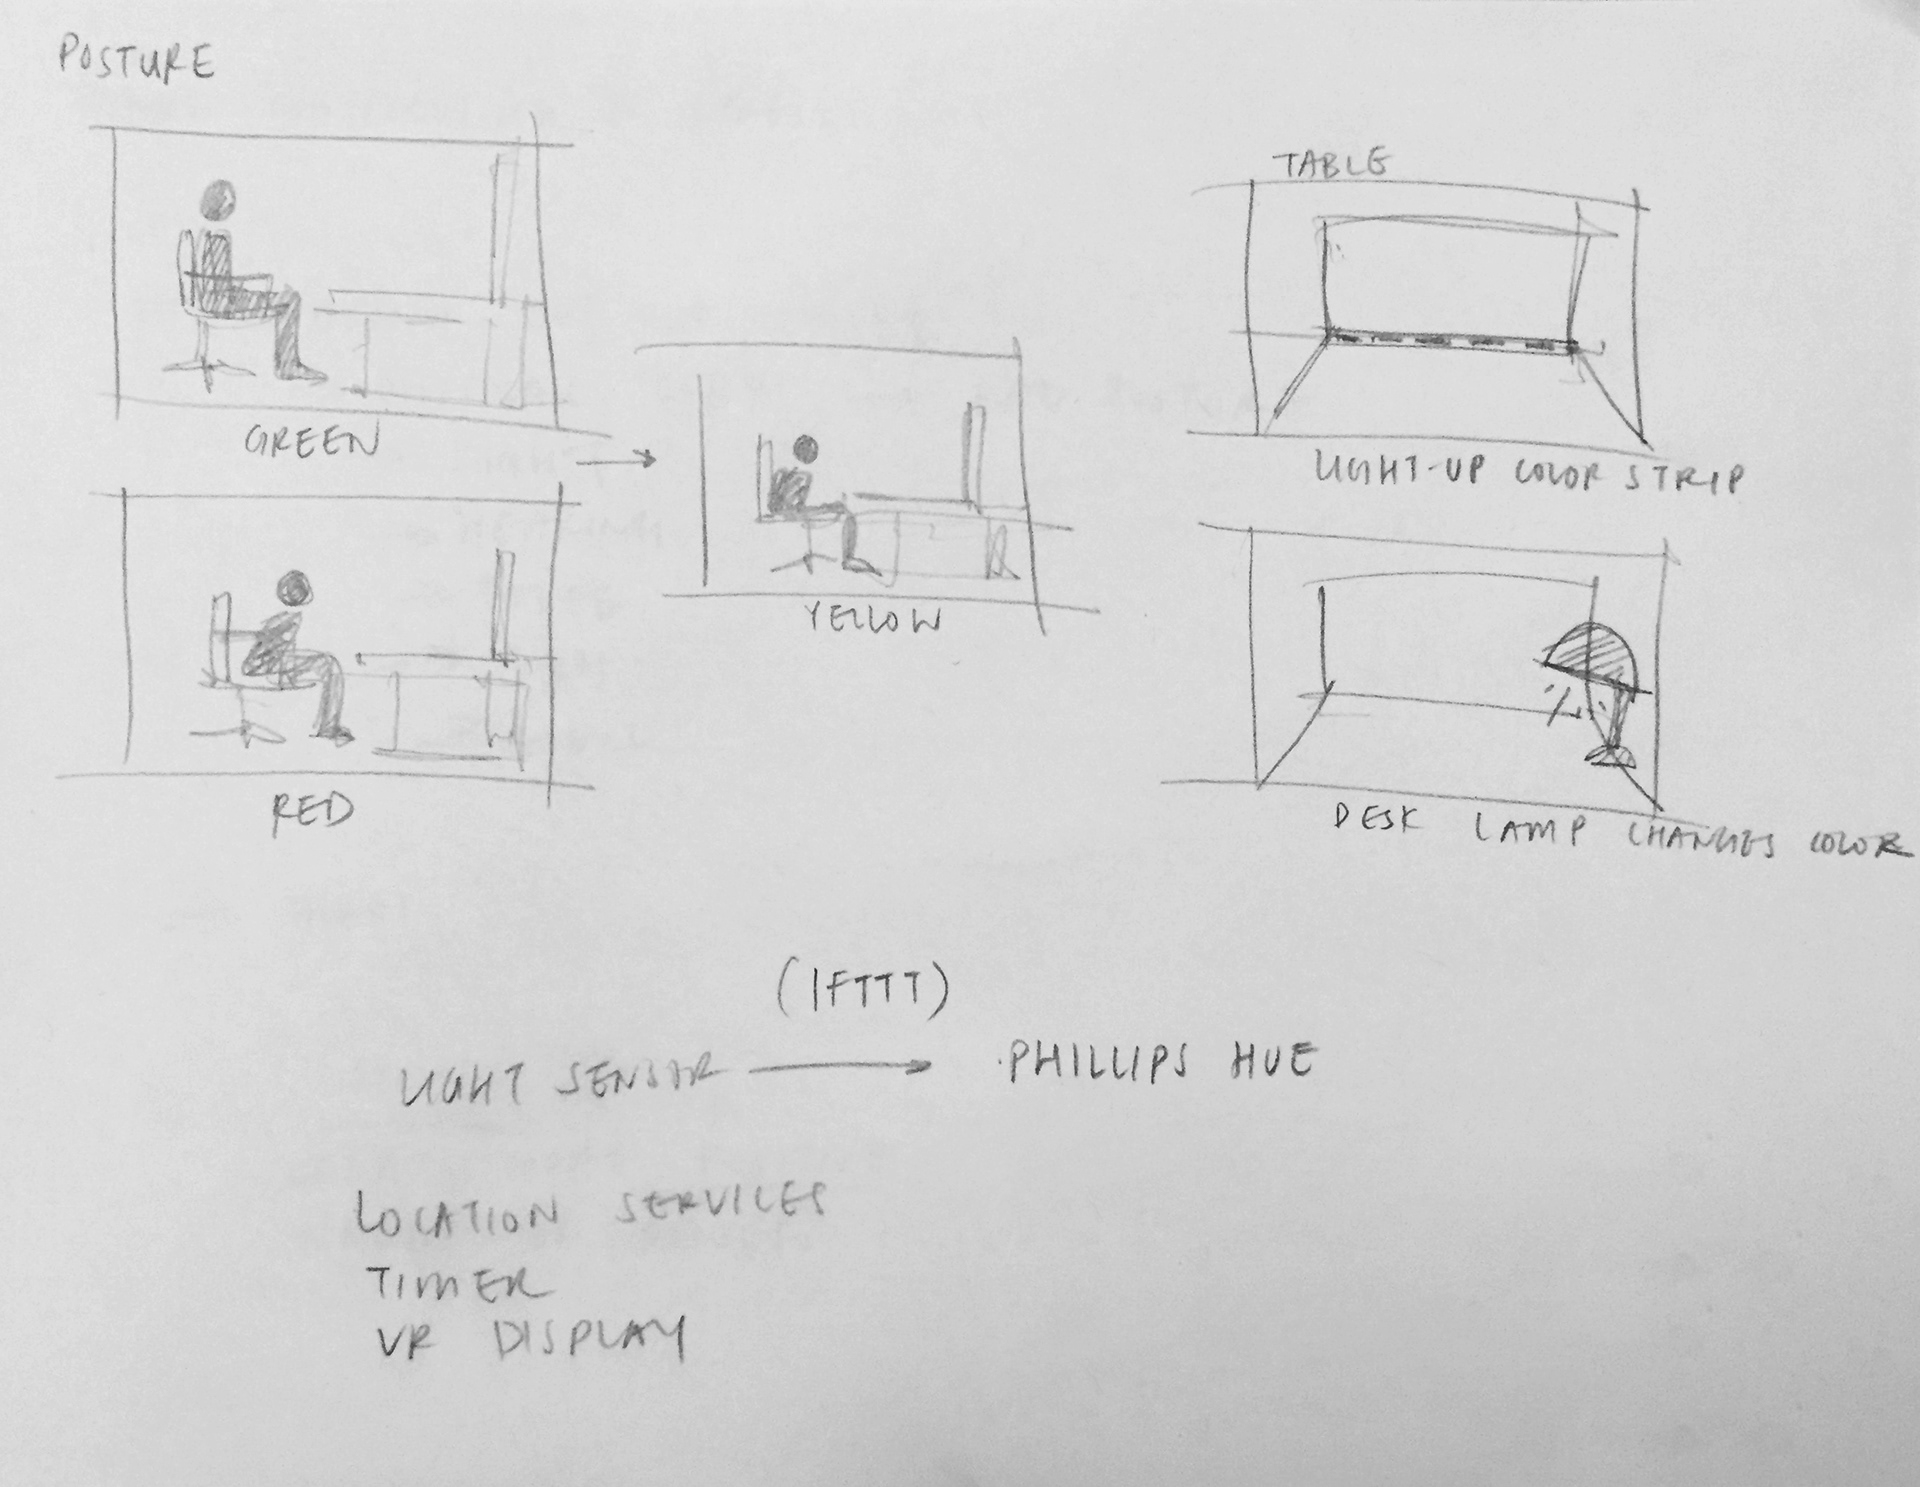 POSTURE
GREEN
YELLOW
RED
TABLE
LIGHT-UP COLOR STRIP
DESK LAMP CHANGES COLOR
(IFTTT)
LIGHT SENSOR → PHILLIPS HUE
LOCATION SERVICES
TIMER
VR DISPLAY